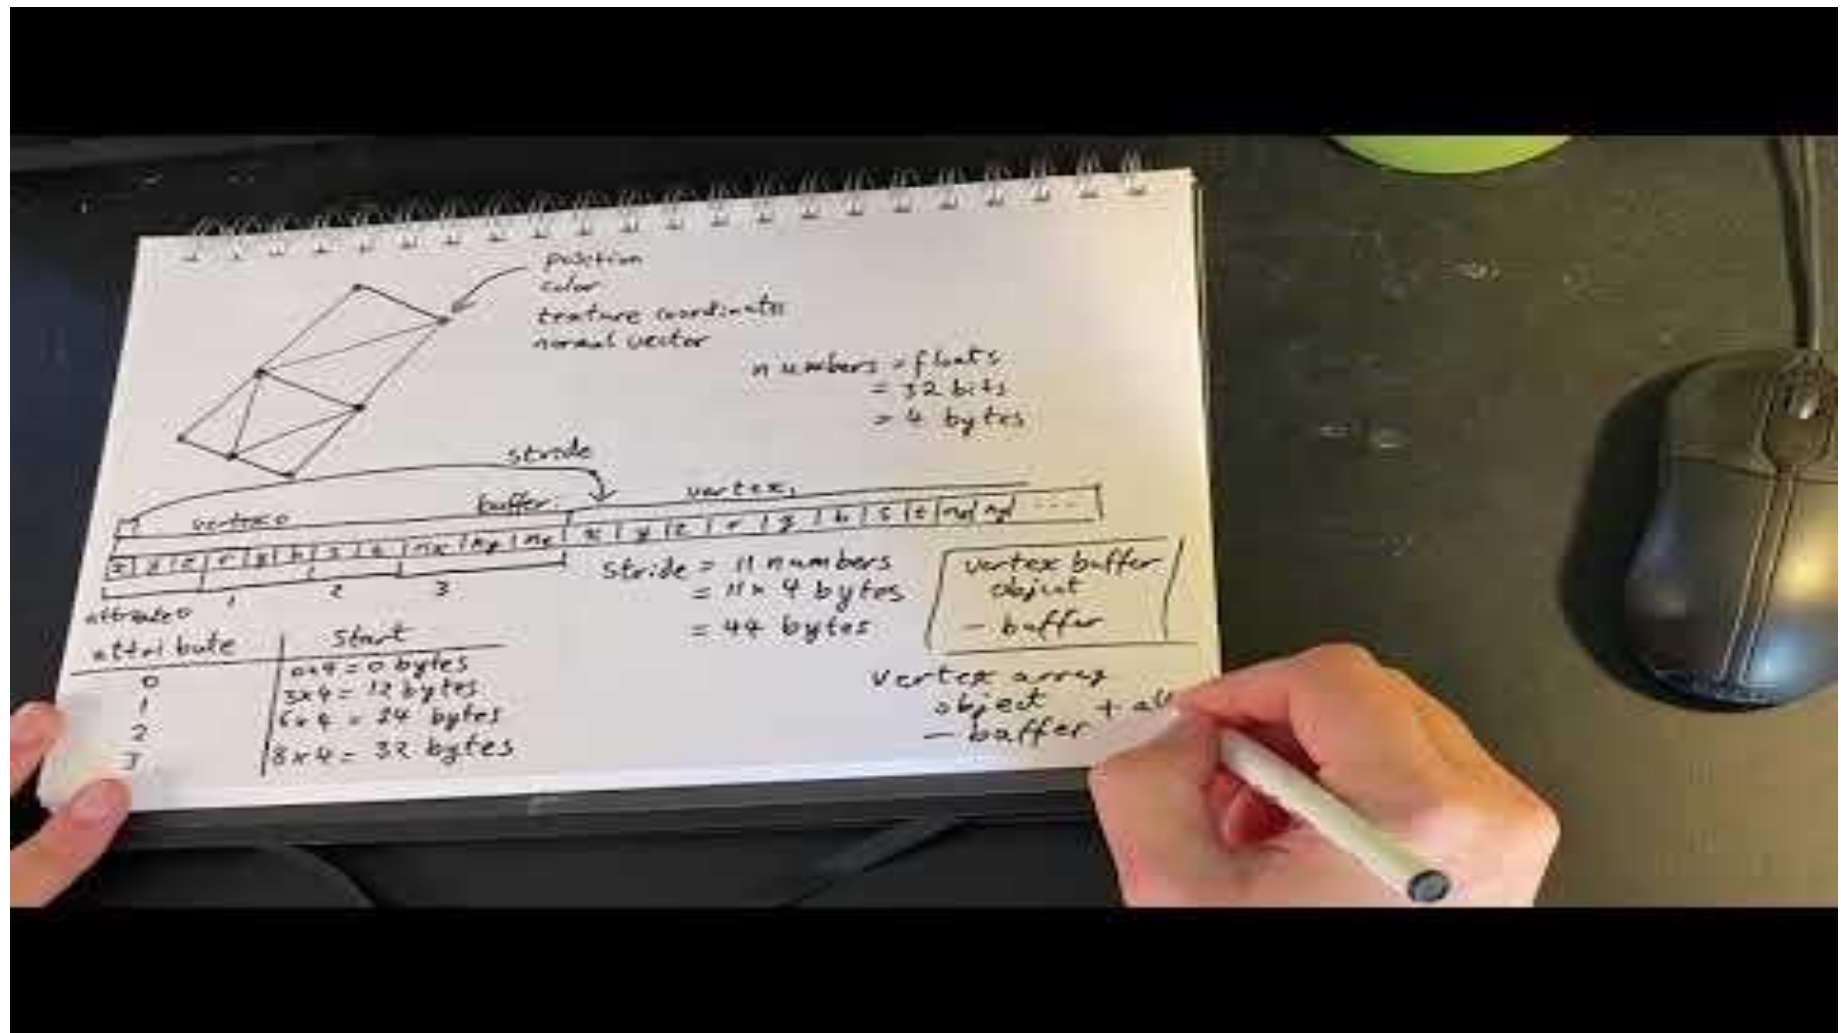 position
color
texture coordinates
normal vector
numbers = floats
= 32 bits
= 4 bytes
stride
buffer:
vertex 0
vertex 1
x | y | z | r | g | b | s | t | nx | ny | nz | x | y | z | r | g | b | s | t | nx | ny | ...
attribute 0 1 2 3
stride = 11 numbers
= 11 x 4 bytes
= 44 bytes
vertex buffer
object
- buffer
attribute | start
0 | 0x4 = 0 bytes
1 | 3x4 = 12 bytes
2 | 6x4 = 24 bytes
3 | 8x4 = 32 bytes
vertex array
object
- buffer +